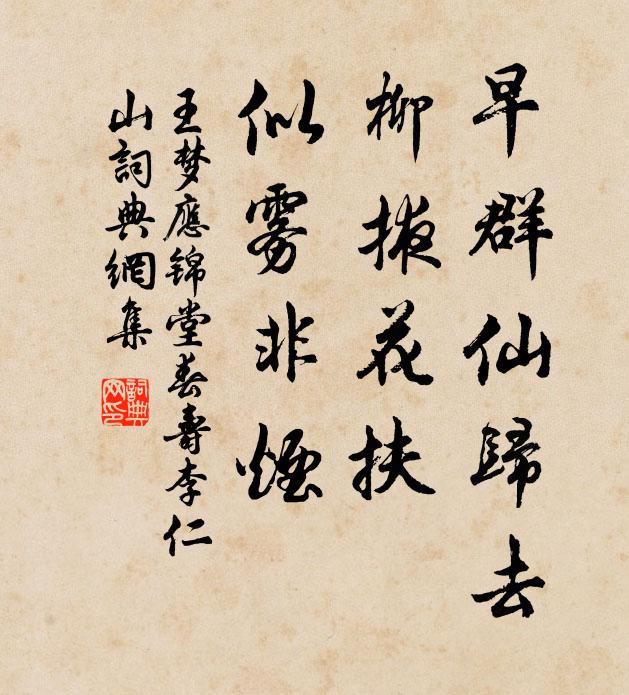 早群仙歸去
柳掖花扶
似雾非煙
王梦應锦堂春壽李仁
山詞典網集
詞典网印